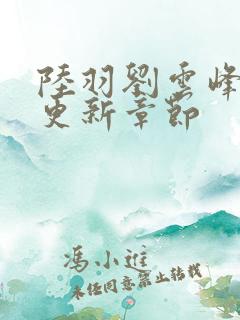 陸羽劉雲峰
更新章節
馮小進
未經同意禁止轉載